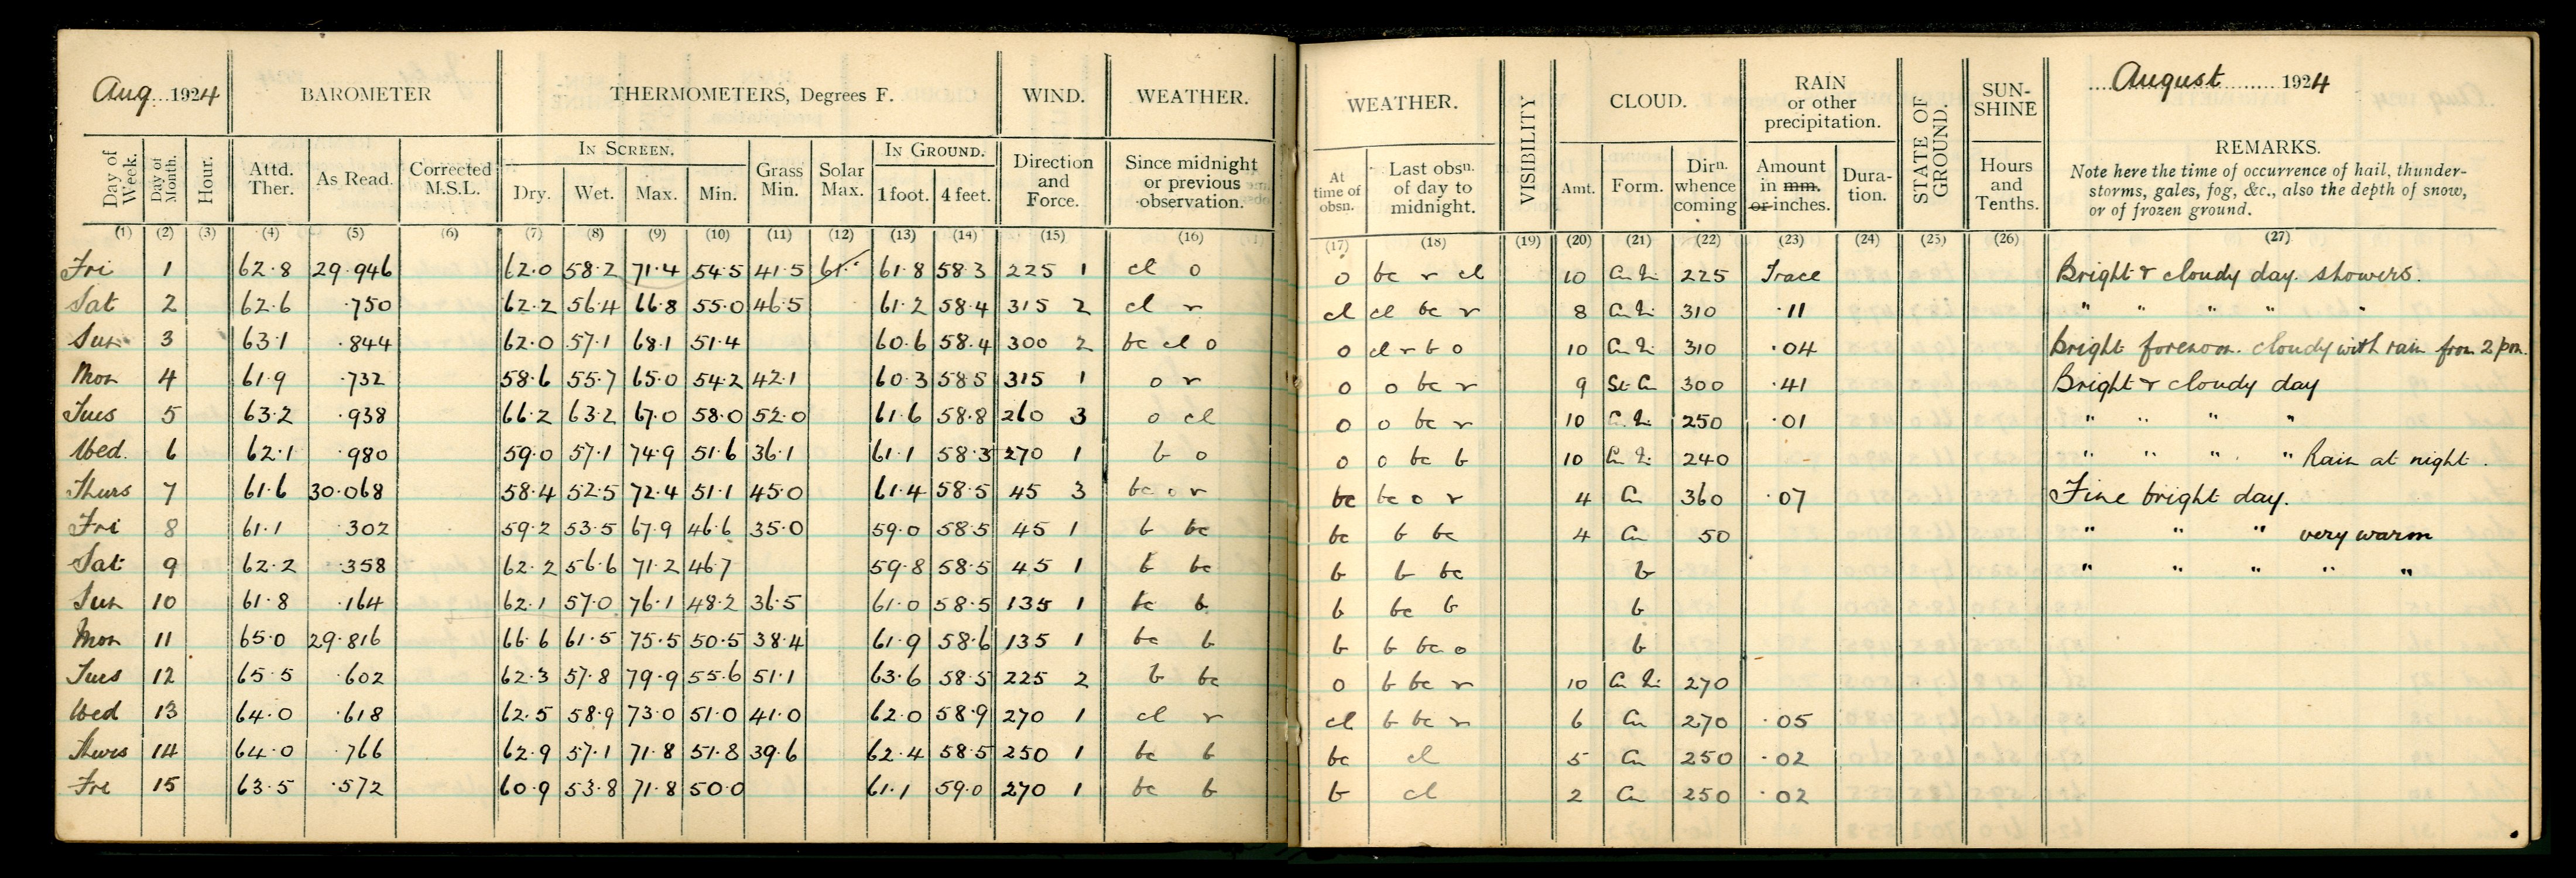 Aug 1924 BAROMETER THERMOMETERS, Degrees F. WIND. WEATHER.
Day of Week. Day of Month. Hour. Attd. Ther. As Read. Corrected M.S.L. IN SCREEN. Dry. Wet. Max. Min. Grass Min. Solar Max. IN GROUND. 1 foot. 4 feet. Direction and Force. Since midnight or previous observation.
(1) (2) (3) (4) (5) (6) (7) (8) (9) (10) (11) (12) (13) (14) (15) (16)
Fri 1 62.8 29.946 62.0 58.2 71.4 54.5 41.5 61.8 58.3 225 1 cl o
Sat 2 62.6 .750 62.2 56.4 66.8 55.0 46.5 61.2 58.4 315 2 cl r
Sun 3 63.1 .844 62.0 57.1 68.1 51.4 60.6 58.4 300 2 bc cl o
Mon 4 61.9 .732 58.6 55.7 65.0 54.2 42.1 60.3 58.5 315 1 o r
Tues 5 63.2 .938 66.2 63.2 67.0 58.0 52.0 61.6 58.8 260 3 o cl
Wed. 6 62.1 .980 59.0 57.1 74.9 51.6 36.1 61.1 58.3 270 1 b o
Thurs 7 61.6 30.068 58.4 52.5 72.4 51.1 45.0 61.4 58.5 45 3 bc o r
Fri 8 61.1 302 59.2 53.5 67.9 46.6 35.0 59.0 58.5 45 1 b bc
Sat 9 62.2 .358 62.2 56.6 71.2 46.7 59.8 58.5 45 1 b bc
Sun 10 61.8 .164 62.1 57.0 76.1 48.2 36.5 61.0 58.5 135 1 bc b
Mon 11 65.0 29.816 66.6 61.5 75.5 50.5 38.4 61.9 58.6 135 1 bc b
Tues 12 65.5 .602 62.3 57.8 79.9 55.6 51.1 63.6 58.5 225 2 b bc
Wed 13 64.0 .618 62.5 58.9 73.0 51.0 41.0 62.0 58.9 270 1 cl r
Thurs 14 64.0 .766 62.9 57.1 71.8 51.8 39.6 62.4 58.5 250 1 bc b
Fri 15 63.5 .572 60.9 53.8 71.8 50.0 61.1 59.0 270 1 bc b
WEATHER. VISIBILITY CLOUD. RAIN or other precipitation. STATE OF GROUND. SUN-SHINE August 1924
At time of obsn. Last obsn. of day to midnight. Amt. Form. Dirn. whence coming Amount in mm. or inches. Duration. Hours and Tenths. REMARKS.
Note here the time of occurrence of hail, thunder-
storms, gales, fog, &c., also the depth of snow,
or of frozen ground.
(17) (18) (19) (20) (21) (22) (23) (24) (25) (26) (27)
o bc r cl 10 Cu Ni 225 Trace Bright & cloudy day. showers.
cl cl bc r 8 Cu Ni 310 .11 " " " " "
o cl r b o 10 Cu Ni 310 .04 Bright forenoon. cloudy with rain from 2 pm.
o o bc r 9 St Cu 300 .41 Bright & cloudy day
o o bc r 10 Cu Ni 250 .01 " " " "
o o bc b 10 Cu Ni 240 " " " " Rain at night.
bc bc o r 4 Cu 360 .07 Fine bright day.
bc b bc 4 Cu 50 " " " very warm
b b bc b " " " " "
b bc b b
b b bc o b
o b bc r 10 Cu Ni 270
cl b bc r 6 Cu 270 .05
bc cl 5 Cu 250 .02
b cl 2 Cu 250 .02